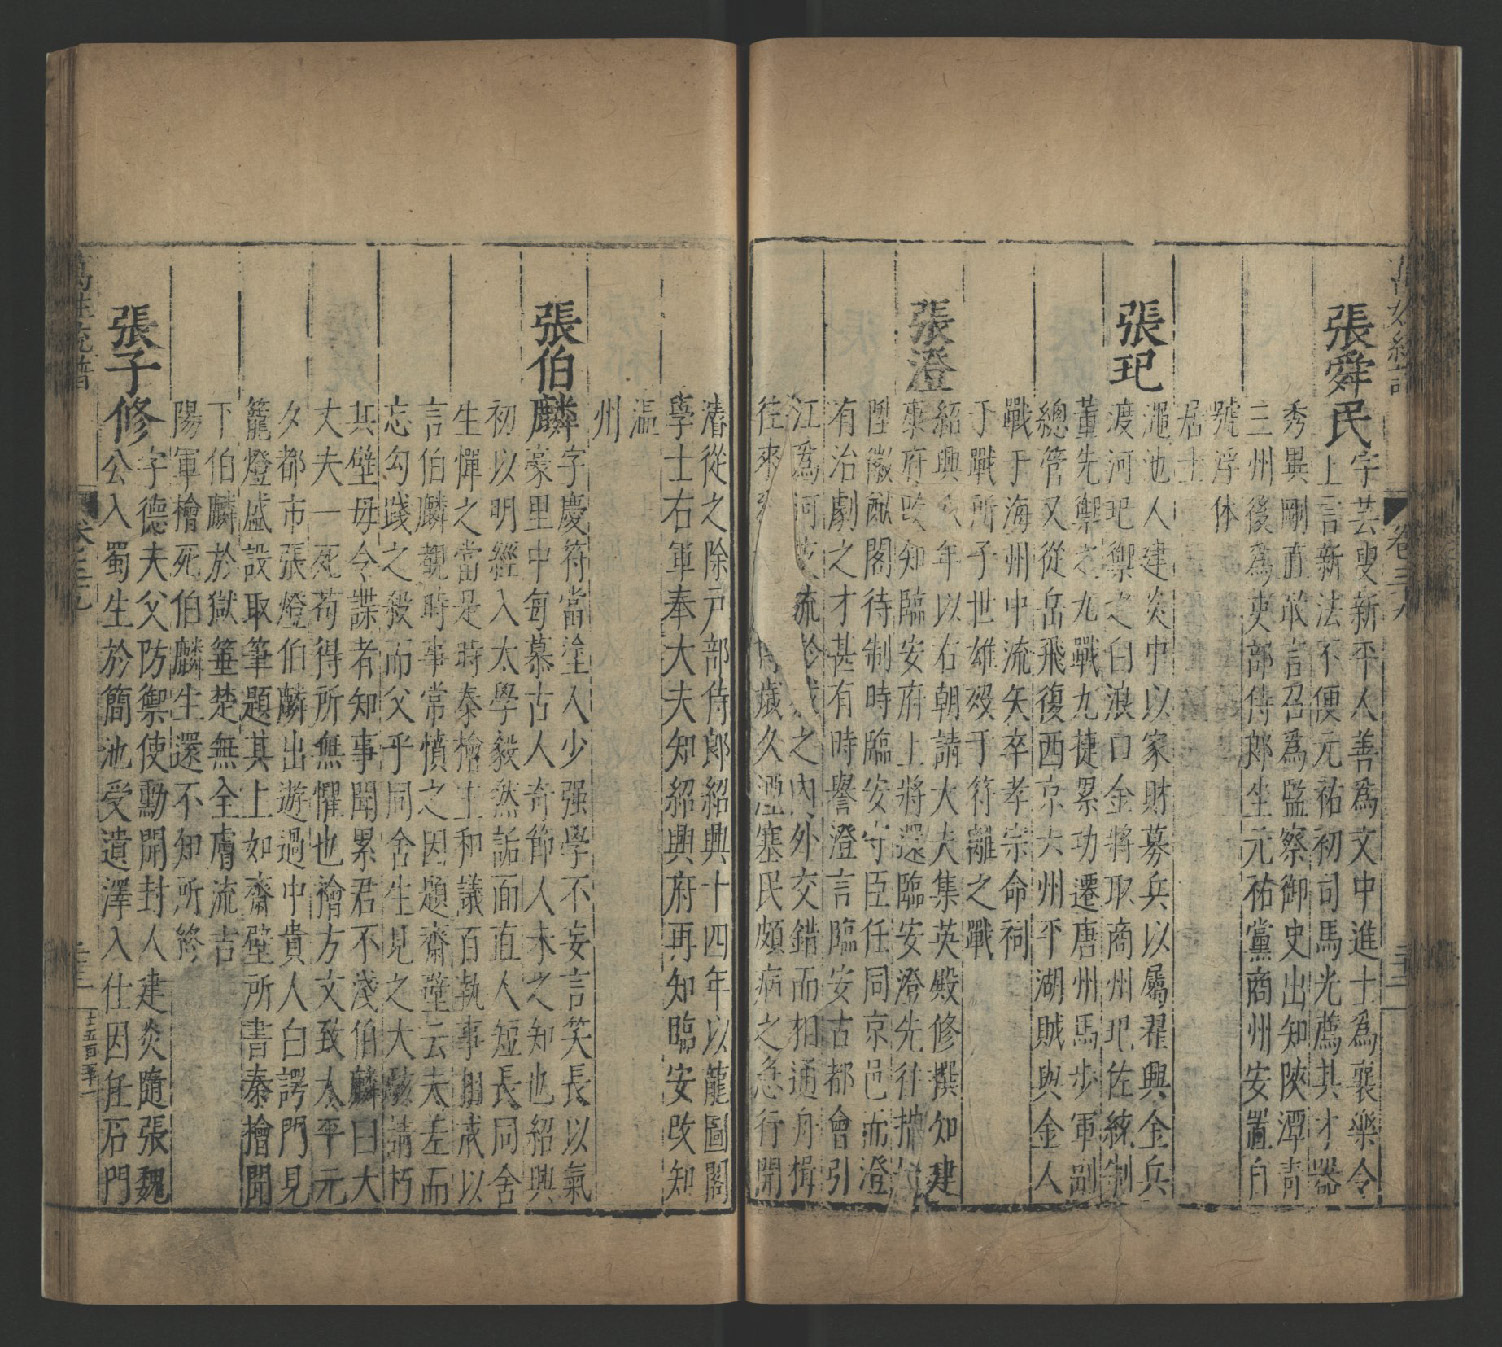 張舜民
字芸叟新平人善爲文中進士爲襄樂令
上言新法不便元祐初司馬光薦其才器
秀異剛直敢言召爲監察御史出知陝潭青
三州後爲吏部侍郎坐元祐黨商州安置自
號浮休
居士
張玘
澠池人建炎中以家財募兵以屬翟興金兵
渡河玘禦之白浪口金將取商州玘佐統制
董先禦之九戰九捷累功遷唐州馬步軍副
總管又從岳飛復西京六州平湖賊與金人
戰于海州中流矢卒孝宗命祠
于戰所子世雄歿于符離之戰
張澄
紹興八年以右朝請大夫集英殿修撰知建
康府改知臨安府上將還臨安澄先往措
置徽猷閣待制時臨安守臣任同京邑而澄
有治劇之才甚有時譽澄言臨安古都會引
江爲河 流於城之內外交錯而相通舟楫
往來 歲久湮塞民頗病之急行開
濬從之除戸部侍郎紹興十四年以龍圖閣
學士右軍奉大夫知紹興府再知臨安改知
温
州
張伯麟
字慶符當塗人少强學不妄言笑長以氣
豪里中每慕古人奇節人未之知也紹興
初以明經入太學毅然詬面直人短長同舍
生憚之當是時秦檜主和議百執事相戒以
言伯麟覩時事常憤之因題齋壁云夫差而
忘勾踐之殺而父乎同舍生見之大駭請朽
其壁毋令諜者知事聞累君不淺伯麟曰大
丈夫一死苟得所無懼也檜方文致太平元
夕都市張燈伯麟出遊過中貴人白諤門見
籠燈盛設取筆題其上如齋壁所書秦檜聞
下伯麟於獄箠楚無全膚流吉
陽軍檜死伯麟生還不知所終
張子修
字德夫父防禦使勳開封人建炎隨張魏
公入蜀生於簡池受遺澤入仕因任石門